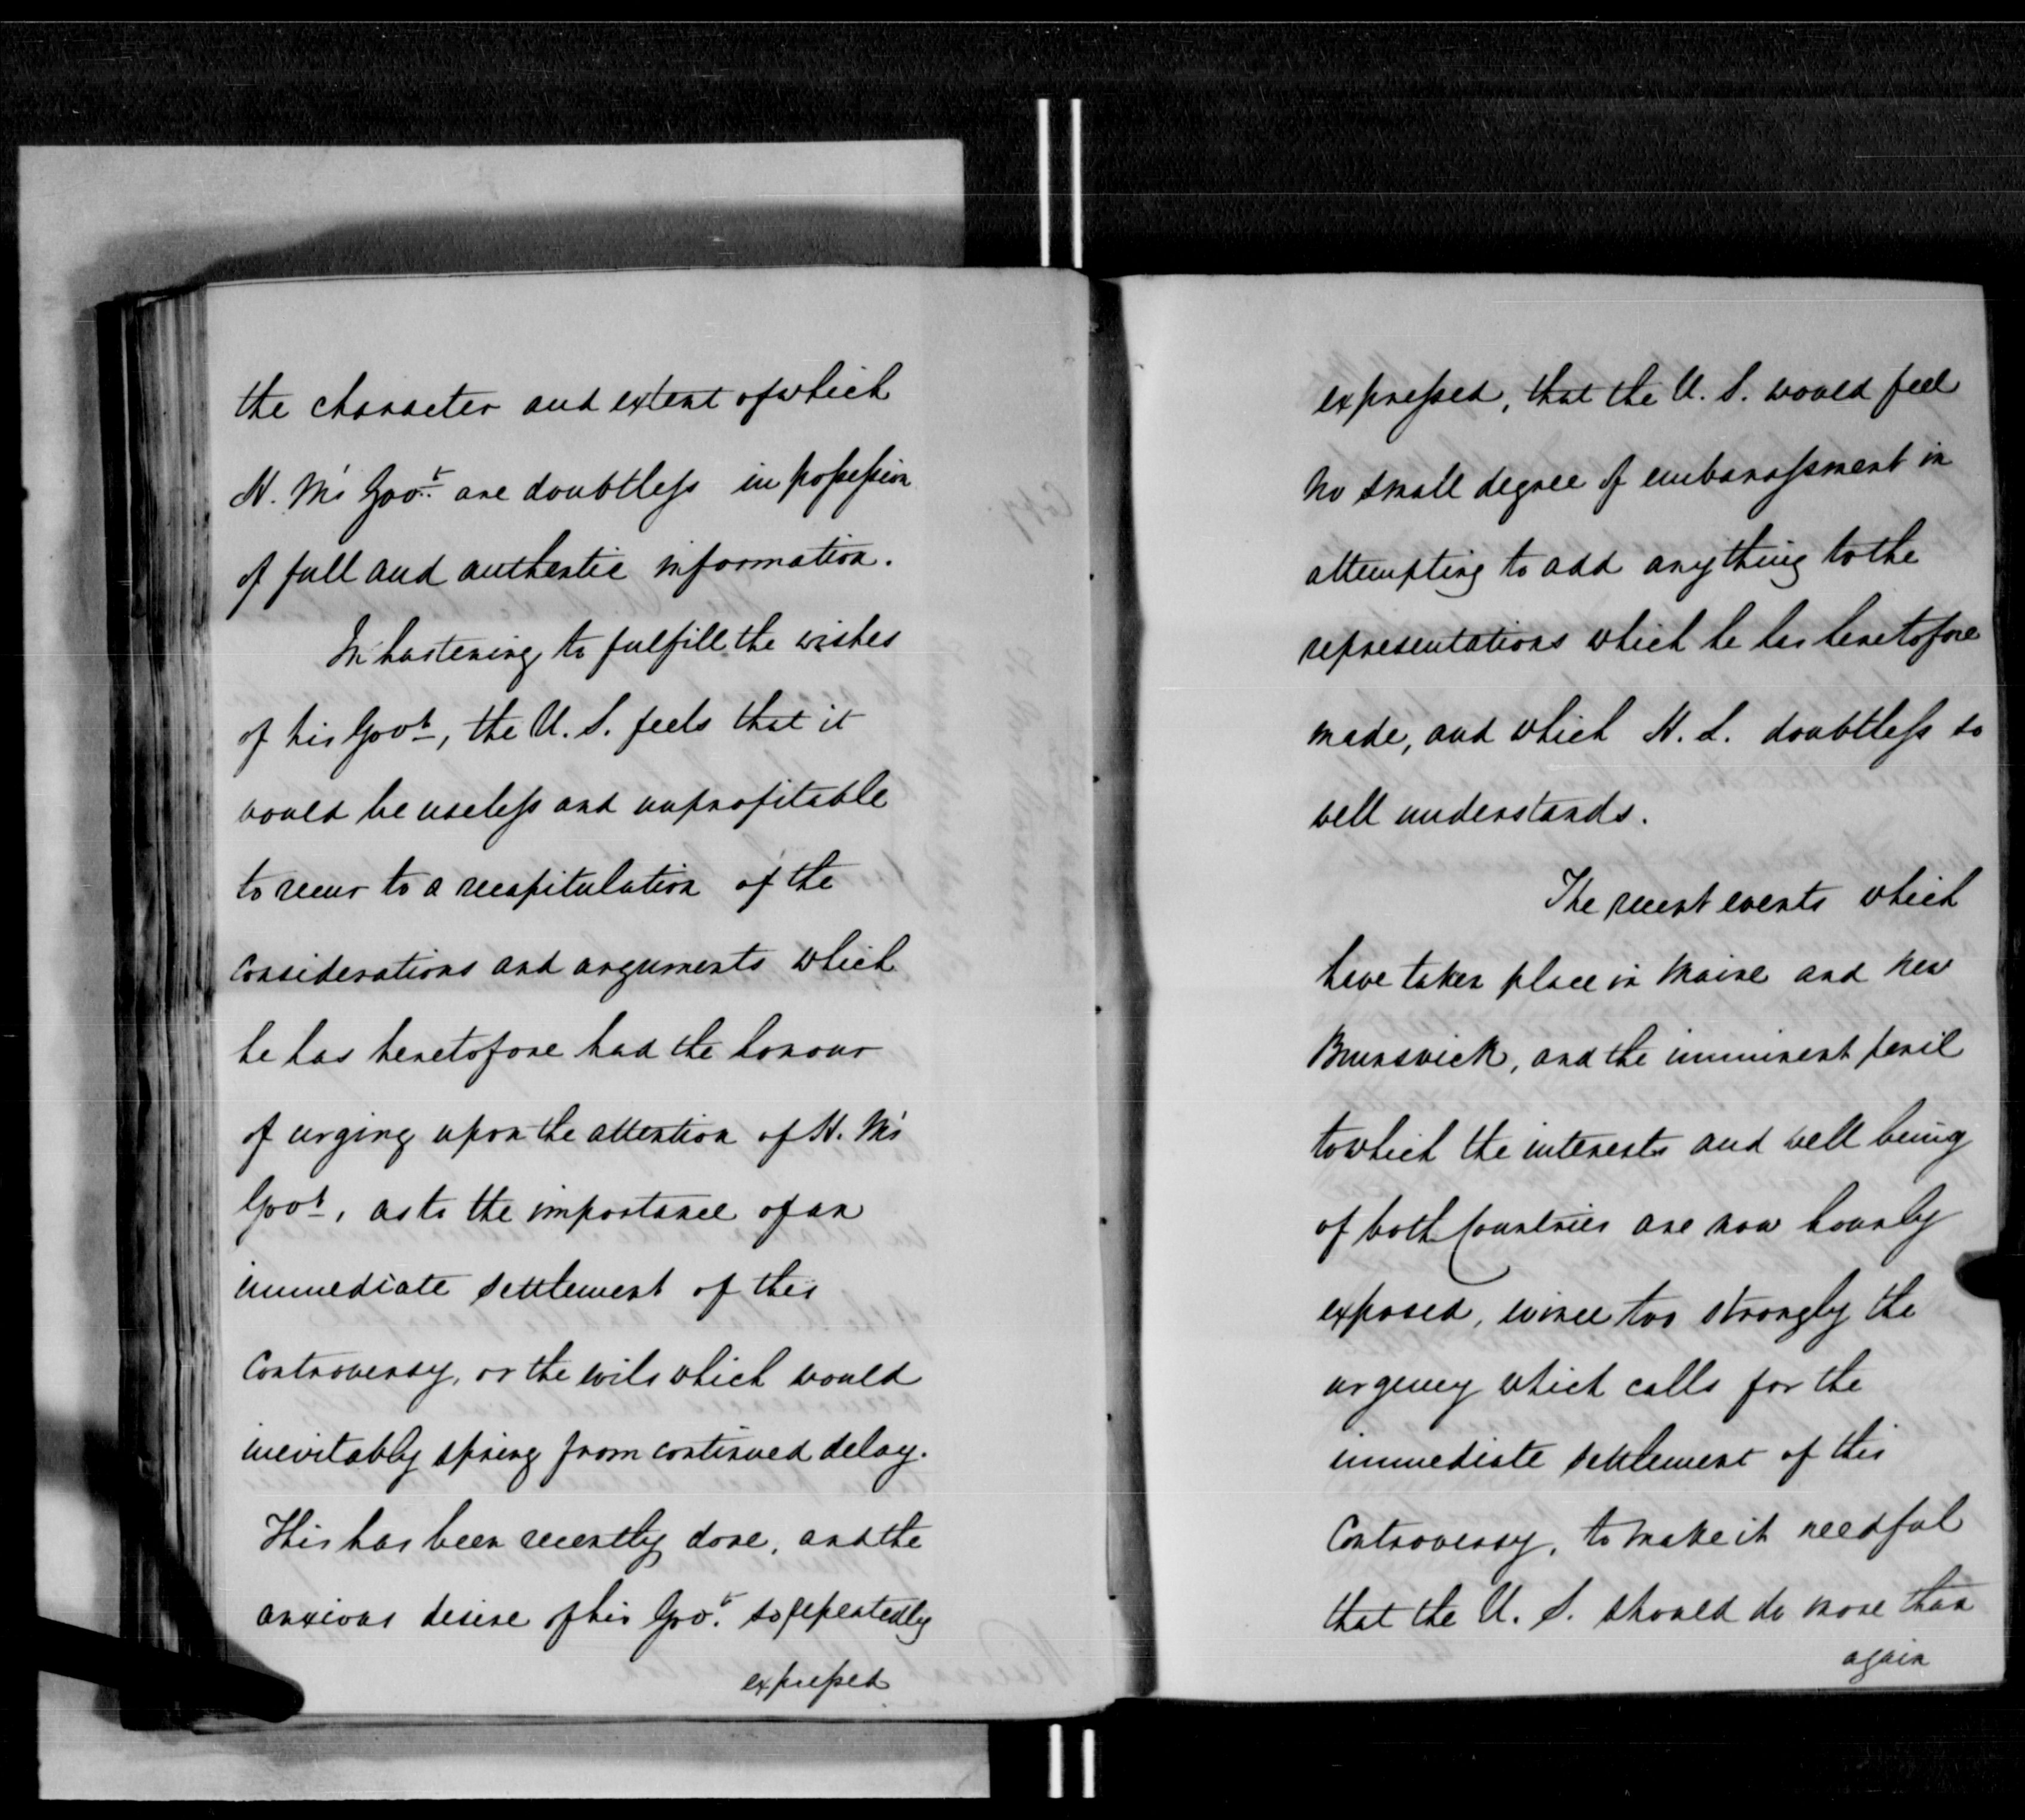 the character and extent of which
H. M's Gov.t are doubtleſs in poſseſsion
of full and authentic information.
In hastening to fulfill the wishes
of his Govt, the U. S. feels that it
would be useleſs and unprofitable
to recur to a recapitulation of the
Considerations and arguments which
he has heretofore had the honour
of urging upon the attention of H. M's
Govt, as to the importance of an
immediate settlement of this
Controversy, or the evils which would
inevitably spring from continued delay.
This has been recently done, and the
anxious desire of his Gov.t so repeatedly
expreſsed
expreſsed, that the U. S. would feel
no small degree of embarraſsment in
attempting to add anything to the
representations which he has heretofore
made, and which H. L. doubtleſs so
well understands.
The recent events which
have taken place in Maine and New
Brunswick, and the imminent peril
to which the interests and well being
of both Countries are now hourly
exposed, evince too strongly the
urgency which calls for the
immediate settlement of this
Controversy, to make it needful
that the U. S. should do more than
again